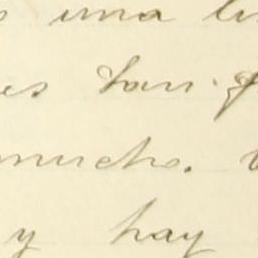 una
es tan
mucho.
y hay